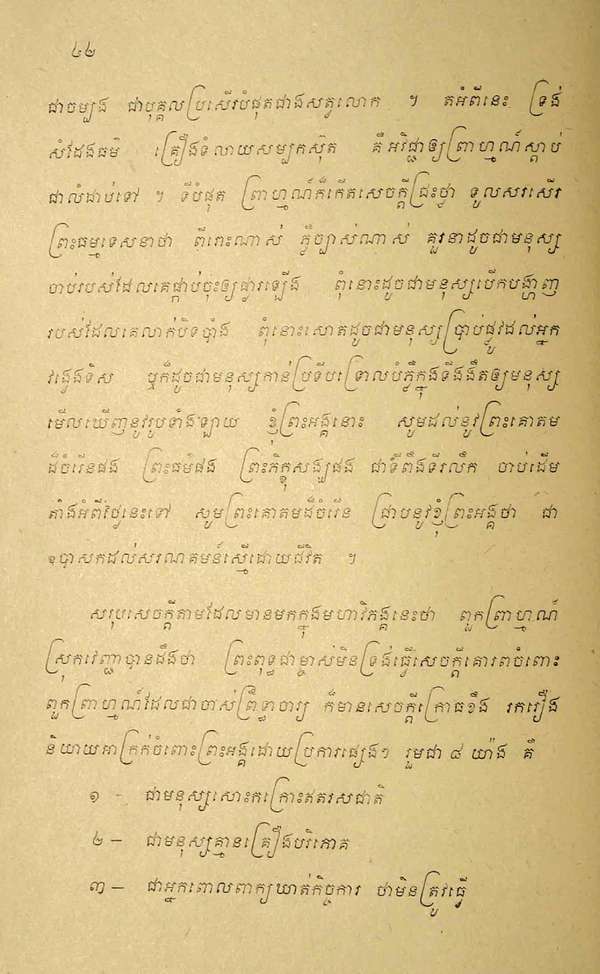 ៤២
ជាចម្បង ជាបុគ្គលប្រសើរបំផុតជាងសត្វលោក ។ តអំពីនេះ ទ្រង់
សំដែងធម៌ គ្រឿងទំលាយសម្បកស៊ុត គឺអវិជ្ជាឲ្យព្រាហ្មណ៍ស្ដាប់
ជាលំដាប់ទៅ ។ ទីបំផុត ព្រាហ្មណ៍ក៏កើតសេចក្ដីជ្រះថ្លា ទូលសរសើរ
ព្រះធម្មទេសនាថា ពីរោះណាស់ ភ្លឺច្បាស់ណាស់ គួរនាដូចជាមនុស្ស
ចាប់របស់ដែលគេផ្កាប់ចុះឲ្យផ្ងារឡើង ពុំនោះដូចជាមនុស្សបើកបង្ហាញ
របស់ដែលគេលាក់បិទបាំង ពុំនោះសោតដូចជាមនុស្សប្រាប់ផ្លូវដល់អ្នក
វង្វេងទិស ឬក៏ដូចជាមនុស្សកាន់ប្រទីបទ្រោលបំភ្លឺក្នុងទីងងឹតឲ្យមនុស្ស
មើលឃើញនូវរូបទាំងឡាយ ខ្ញុំព្រះអង្គនោះ សូមដល់នូវព្រះគោតម
ដ៏ចំរើនផង ព្រះធម៌ផង ព្រះភិក្ខុសង្ឃផង ជាទីពឹងទីរលឹក ចាប់ដើម
តាំងអំពីថ្ងៃនេះទៅ សូមព្រះគោតមដ៏ចំរើន ជ្រាបនូវខ្ញុំព្រះអង្គថា ជា
ឧបាសកដល់សរណគមន៍ស្មើដោយជីវិត ។
សរុបសេចក្ដីតាមដែលមានមកក្នុងមហាវិភង្គនេះថា ពួកព្រាហ្មណ៍
ស្រុកវេរញ្ជាបានដឹងថា ព្រះពុទ្ធជាម្ចាស់មិនទ្រង់ធ្វើសេចក្ដីគោរពចំពោះ
ពួកព្រាហ្មណ៍ដែលជាចាស់ព្រឹទ្ធាចារ្យ ក៏មានសេចក្ដីក្រោធខឹង រករឿង
និយាយអាក្រក់ចំពោះព្រះអង្គដោយប្រការផ្សេងៗ រួមជា ៨ យ៉ាង គឺ
១ - ជាមនុស្សសោះកក្រោះឥតរសជាតិ
២ - ជាមនុស្សគ្មានគ្រឿងបរិភោគ
៣ - ជាអ្នកពោលពាក្យឃាត់កិច្ចការ ថាមិនត្រូវធ្វើ